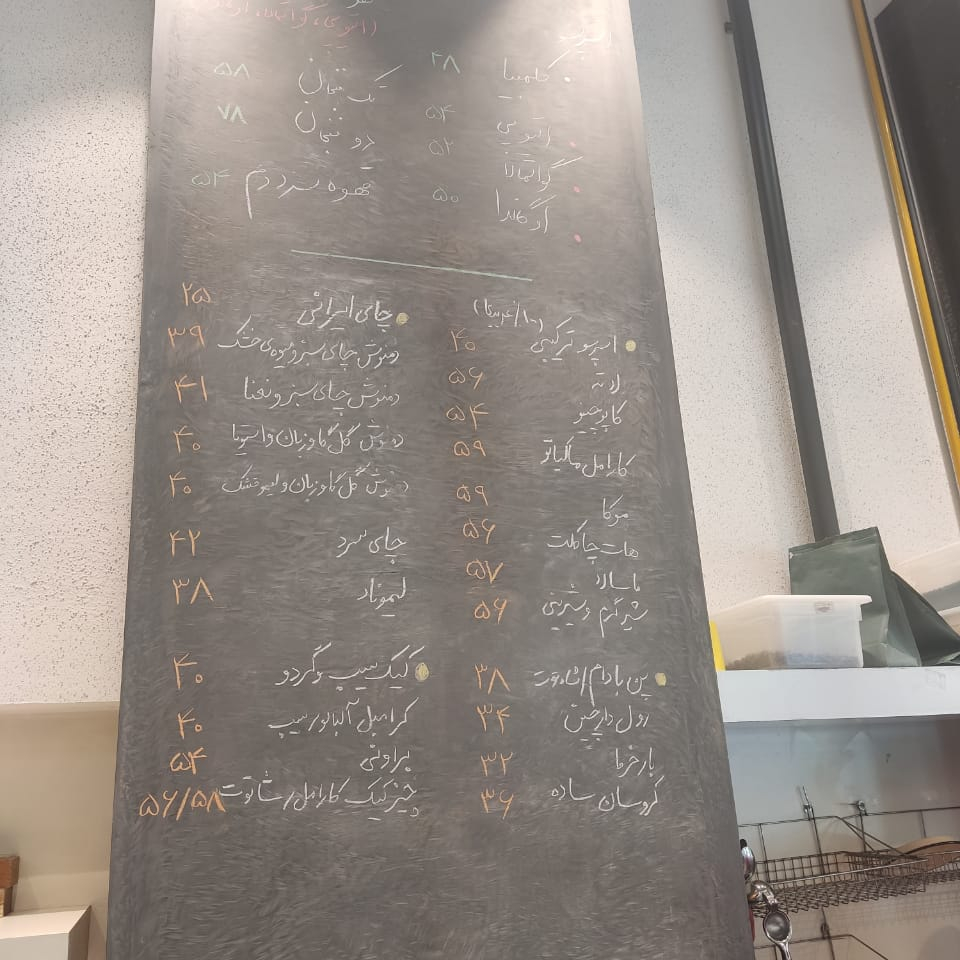 کلمبیا ۴۸
اتیوپی ۵۴
گواتمالا ۵۲
اوگاندا ۵۰
(اتیوپی، گواتمالا،
تک فنجان ۵۸
دو فنجان ۷۸
قهوه سرد دم ۵۴
اسپرسو ترکیبی ۴۰
لاته ۵۶
کاپوچینو ۵۴
کارامل ماکیاتو ۵۹
موکا ۵۹
هات چاکلت ۵۶
ماسالا ۵۷
شیر گرم و شیرینی ۵۶
پن بادام/شاتوت ۳۸
رول دارچین ۳۴
بار خرما ۳۲
کروسان ساده ۳۶
چای ایرانی ۲۵
دمنوش چای سبز و میوه‌ی خشک ۳۹
دمنوش چای سبز و نعنا ۴۱
دمنوش گل گاو زبان و استویا ۴۰
دمنوش گل گاو زبان و لیمو خشک ۴۰
چای سرد ۴۲
لیموناد ۳۸
کیک سیب و گردو ۴۰
کرامبل آلبالو/سیب ۴۰
براونی ۵۴
چیزکیک کارامل/شاتوت ۵۶/۵۸